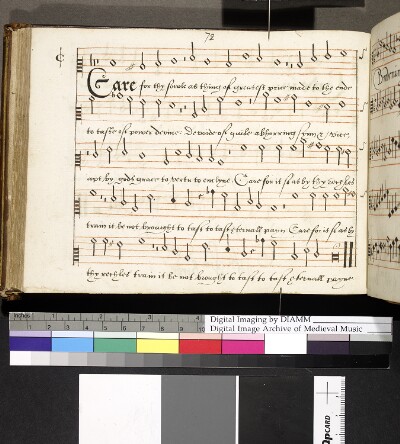 72
Care for thy soule as thing of greatest price made to the ende
to taste of power devine Devoide of guile abhorring synne & vice
apt by gods grace to vertu to enclyne Care for it so as by thy retchles
train it be not brought to tast to tast eternall payn Care for it so as by
thy retchles train it be not brought to tast to tast eternall payne
Digital Imaging by DIAMM
Digital Image Archive of Medieval Music
inches
1 2 3 4
CARD